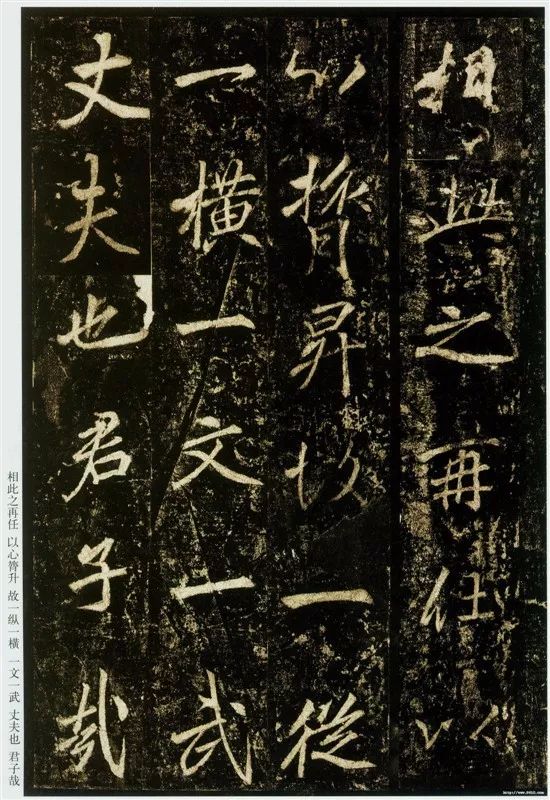 相此之再任以
心膂昇故一從
一橫一文一武
丈夫也君子哉
相此之再任 以心膂升 故一纵一横 一文一武 丈夫也 君子哉